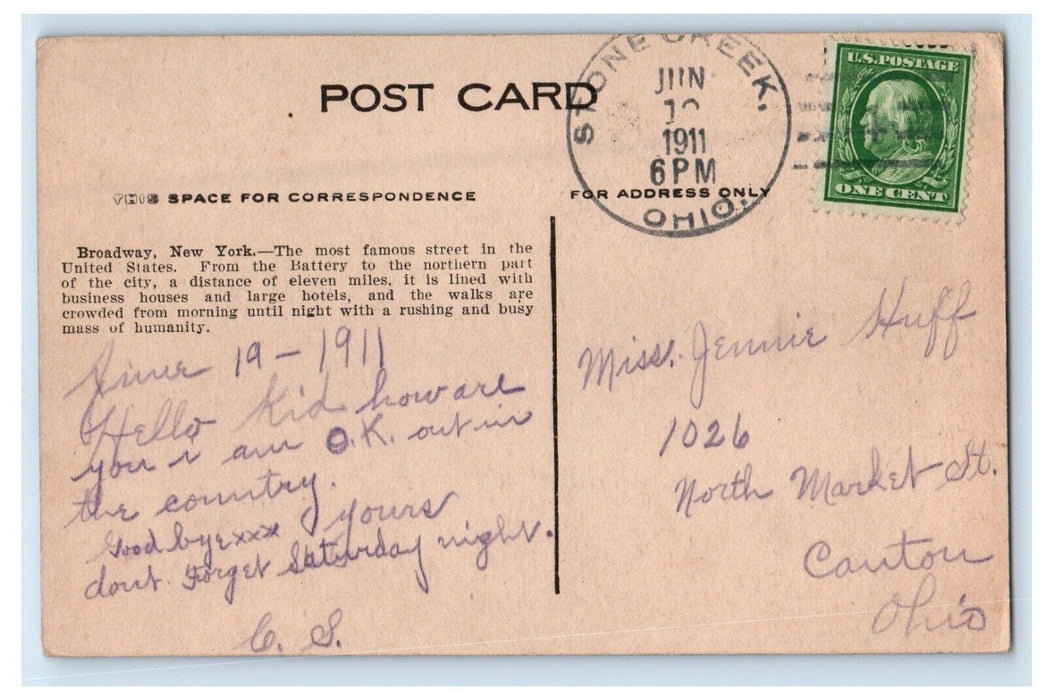 POST CARD
STONE CREEK,
JUN
1911
6PM
OHIO.
U.S.POSTAGE
1
ONE CENT
THIS SPACE FOR CORRESPONDENCE
FOR ADDRESS ONLY
Broadway, New York.—The most famous street in the
United States. From the Battery to the northern part
of the city, a distance of eleven miles, it is lined with
business houses and large hotels, and the walks are
crowded from morning until night with a rushing and busy
mass of humanity.
June 19 - 1911
Hello Kid how are
you i am O.K. out in
the country.
Good bye xxxx yours
dont Forget Saturday night.
C. S.
Miss. Jennie Huff
1026
North Market St.
Canton
Ohio